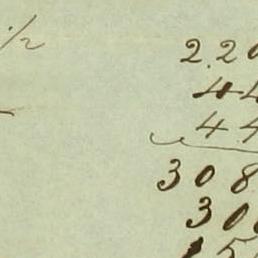 1/2
2.20
44
44
308
30
15